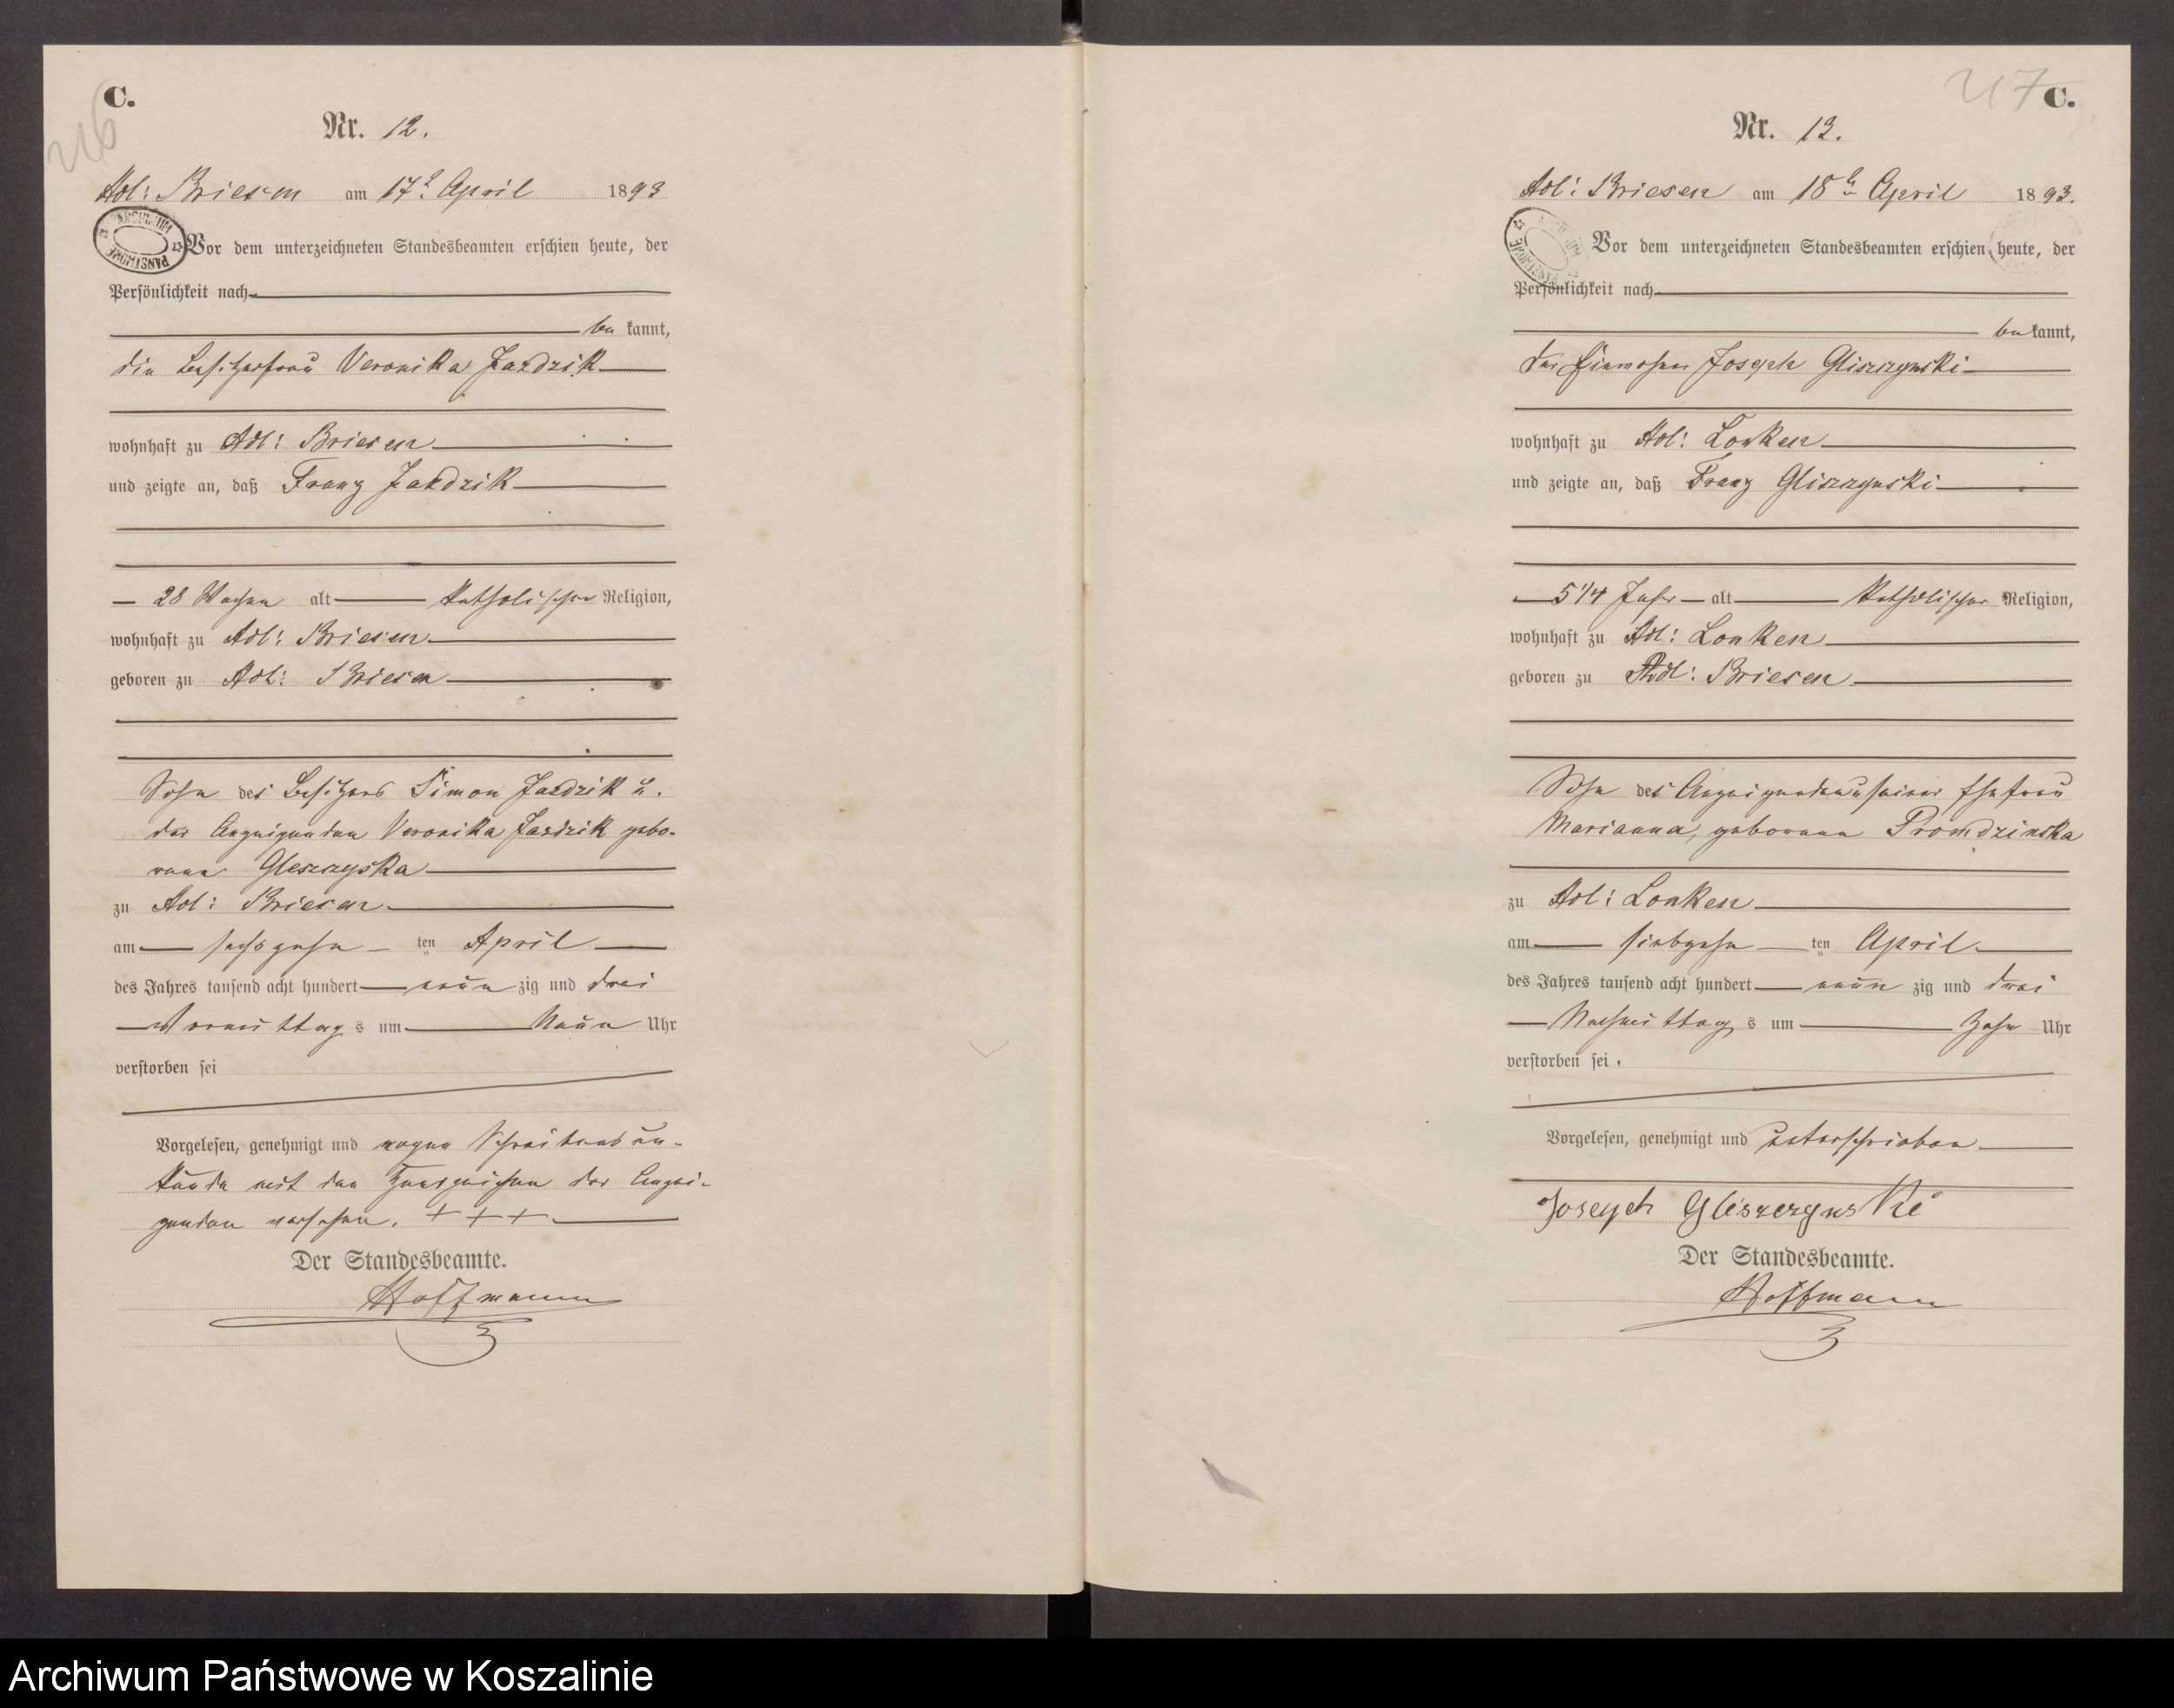 C.
216
Nr. 12.
Adl: Briesen am 17t. April 1893
ARCHIWUM PAŃSTWOWE
Vor dem unterzeichneten Standesbeamten erschien heute, der
Persönlichkeit nach
be kannt,
die Besitzerfrau Veronika Jazdzik
wohnhaft zu Adl: Briesen
und zeigte an, daß Franz Jazdzik
28 Wochen alt katholischer Religion,
wohnhaft zu Adl: Briesen
geboren zu Adl: Briesen
Sohn des Besitzers Simon Jazdzik u.
der Anzeigenden Veronika Jazdzik gebo-
rene Gleszczyska
zu Adl: Briesen
am sechszehn ten April
des Jahres tausend acht hundert neun zig und drei
Vormittag s um Neun Uhr
verstorben sei
Vorgelesen, genehmigt und wegen Schreibensun-
kunde mit den Handzeichen der Anzei-
genden versehen. + + +
Der Standesbeamte.
Hoffmann
217
C.
Nr. 13.
Adl: Briesen am 18t April 1893.
Vor dem unterzeichneten Standesbeamten erschien heute, der
Persönlichkeit nach
be kannt,
der Einwohner Joseph Gliszczynski
wohnhaft zu Adl: Lonken
und zeigte an, daß Franz Gliszczynski
5 1/4 Jahr alt katholischer Religion,
wohnhaft zu Adl: Lonken
geboren zu Adl: Briesen
Sohn des Anzeigenden u seiner Ehefrau
Marianna, geborene Promdzinska
zu Adl: Lonken
am siebzehn ten April
des Jahres tausend acht hundert neun zig und drei
Nachmittag s um Zehn Uhr
verstorben sei.
Vorgelesen, genehmigt und unterschrieben
Joseph Gliszczynski
Der Standesbeamte.
Hoffmann
Archiwum Państwowe w Koszalinie